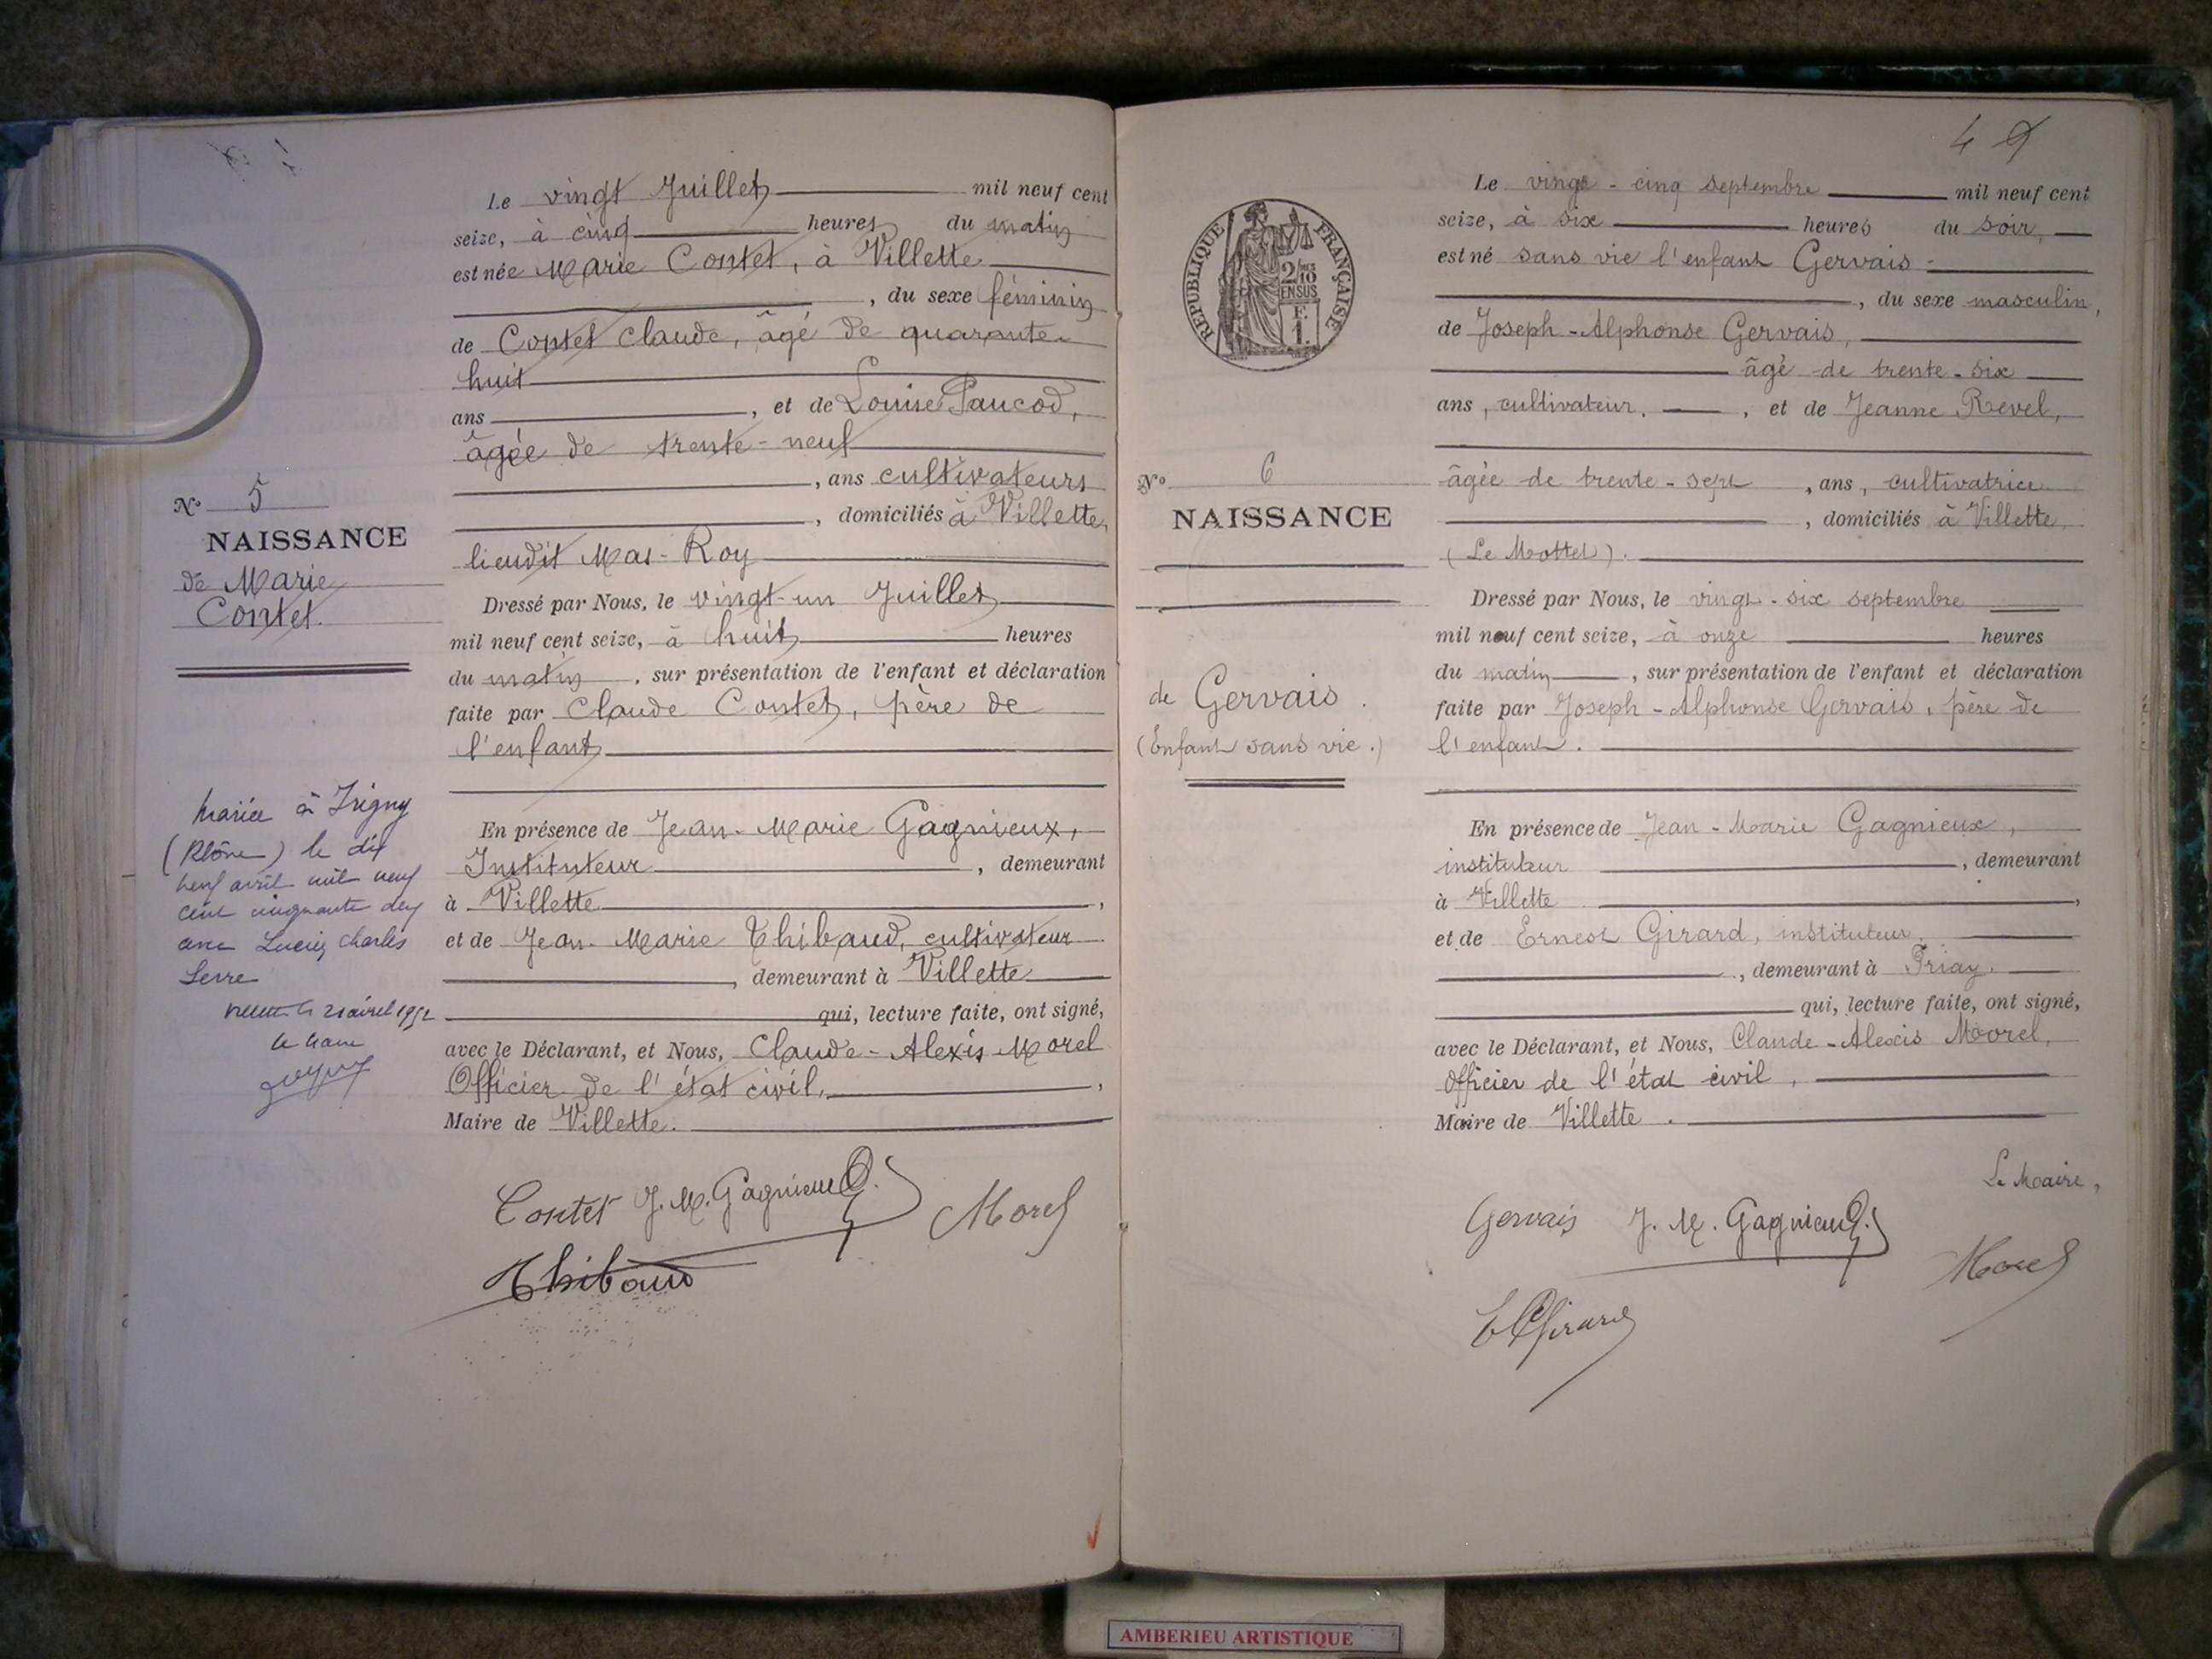 Le vingt Juillet mil neuf cent
seize, à cinq heures du matin
est née Marie Contet, à Villette
, du sexe féminin
de Contet Claude, âgé de quarante-
huit
ans , et de Louise Paucod,
âgée de trente-neuf
, ans cultivateurs
, domiciliés à Villette,
lieudit Mas-Roy
Dressé par Nous, le vingt-un Juillet
mil neuf cent seize, à huit heures
du matin , sur présentation de l'enfant et déclaration
faite par Claude Contet, père de
l'enfant
En présence de Jean-Marie Gagnieux,
Instituteur , demeurant
à Villette ,
et de Jean-Marie Thibaud, cultivateur
, demeurant à Villette
qui, lecture faite, ont signé,
avec le Déclarant, et Nous, Claude-Alexis Morel
Officier de l'état civil, ,
Maire de Villette.
Contet J. M. Gagnieux Morel
Thibaud
No 5
NAISSANCE
de Marie
Contet.
Mariée à Irigny
(Rhône) le dix
neuf avril mil neuf
cent cinquante deux
avec Lucien Charles
Serre
le 21 avril 1952
le Maire
4
RÉPUBLIQUE FRANÇAISE
2/10
EN SUS
F.
1.
No 6
NAISSANCE
de Gervais.
(Enfant sans vie.)
Le vingt-cinq septembre mil neuf cent
seize, à six heures du soir,
est né sans vie l'enfant Gervais
, du sexe masculin,
de Joseph-Alphonse Gervais,
âgé de trente-six
ans, cultivateur, , et de Jeanne Revel,
âgée de trente-sept , ans, cultivatrice
, domiciliés à Villette,
(Le Mottet).
Dressé par Nous, le vingt-six septembre
mil neuf cent seize, à onze heures
du matin , sur présentation de l'enfant et déclaration
faite par Joseph-Alphonse Gervais, père de
l'enfant.
En présence de Jean-Marie Gagnieux,
instituteur , demeurant
à Villette ,
et de Ernest Girard, instituteur,
, demeurant à Priay.
qui, lecture faite, ont signé,
avec le Déclarant, et Nous, Claude-Alexis Morel,
Officier de l'état civil,
Maire de Villette.
Le Maire,
Gervais J. M. Gagnieux
Morel
E Girard
AMBERIEU ARTISTIQUE